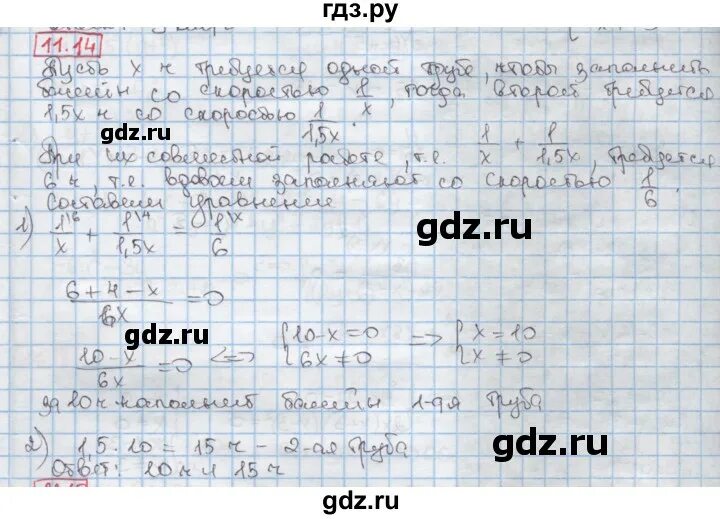 гдз.ру
11.14
Пусть x ч требуется одной трубе, чтобы заполнить
бассейн со скоростью 1/x, тогда второй требуется
1,5x ч со скоростью 1/1,5x.
При их совместной работе, т.е. 1/x + 1/1,5x, требуется
6 ч, т.е. вдвоем заполняют со скоростью 1/6.
Составим уравнение
1) 1\6/x + 1\4/1,5x = 1\x/6
6+4-x/6x = 0
10-x/6x = 0 <=> {10-x=0 6x≠0 => {x=10 x≠0
за 10 ч наполнит бассейн 1-ая труба
2) 1,5·10 = 15 ч - 2-ая труба
Ответ: 10 ч и 15 ч
gdz.ru
gdz.ru
gdz.ru
gdz.ru
gdz.ru
gdz.ru
gdz.ru